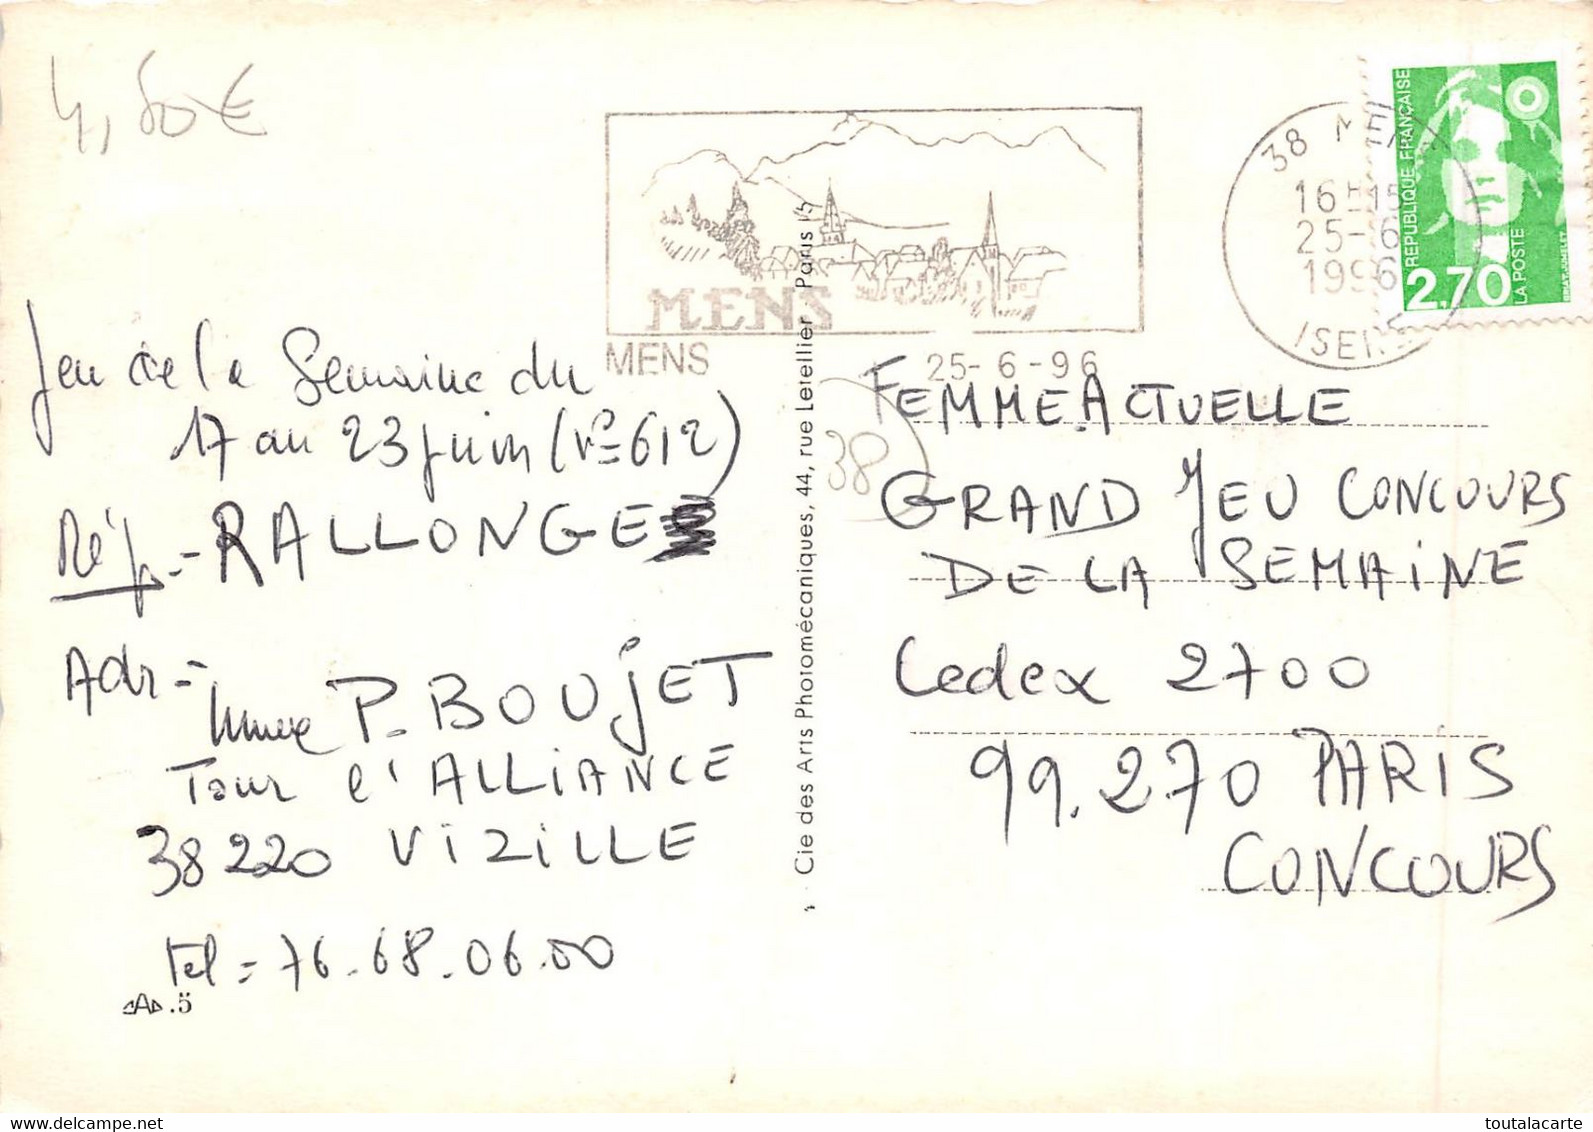 4,50€
MENS
MENS
25-6-96
38 MENS
16H15
25-6
1996
ISERE
REPUBLIQUE FRANÇAISE
LA POSTE
2,70
Jeu de la Semaine du
17 au 23 juin (N°=612)
Rép.- RALLONGE
Adr = Mme P. BOUJET
Tour l'ALLIANCE
38220 VIZILLE
tel = 76.68.06.00
.5
Cie des Arts Photomécaniques, 44, rue Letellier Paris 15
38
FEMME ACTUELLE
GRAND JEU CONCOURS
DE LA SEMAINE
Cedex 2700
99.270 PARIS
CONCOURS
toutalacarte